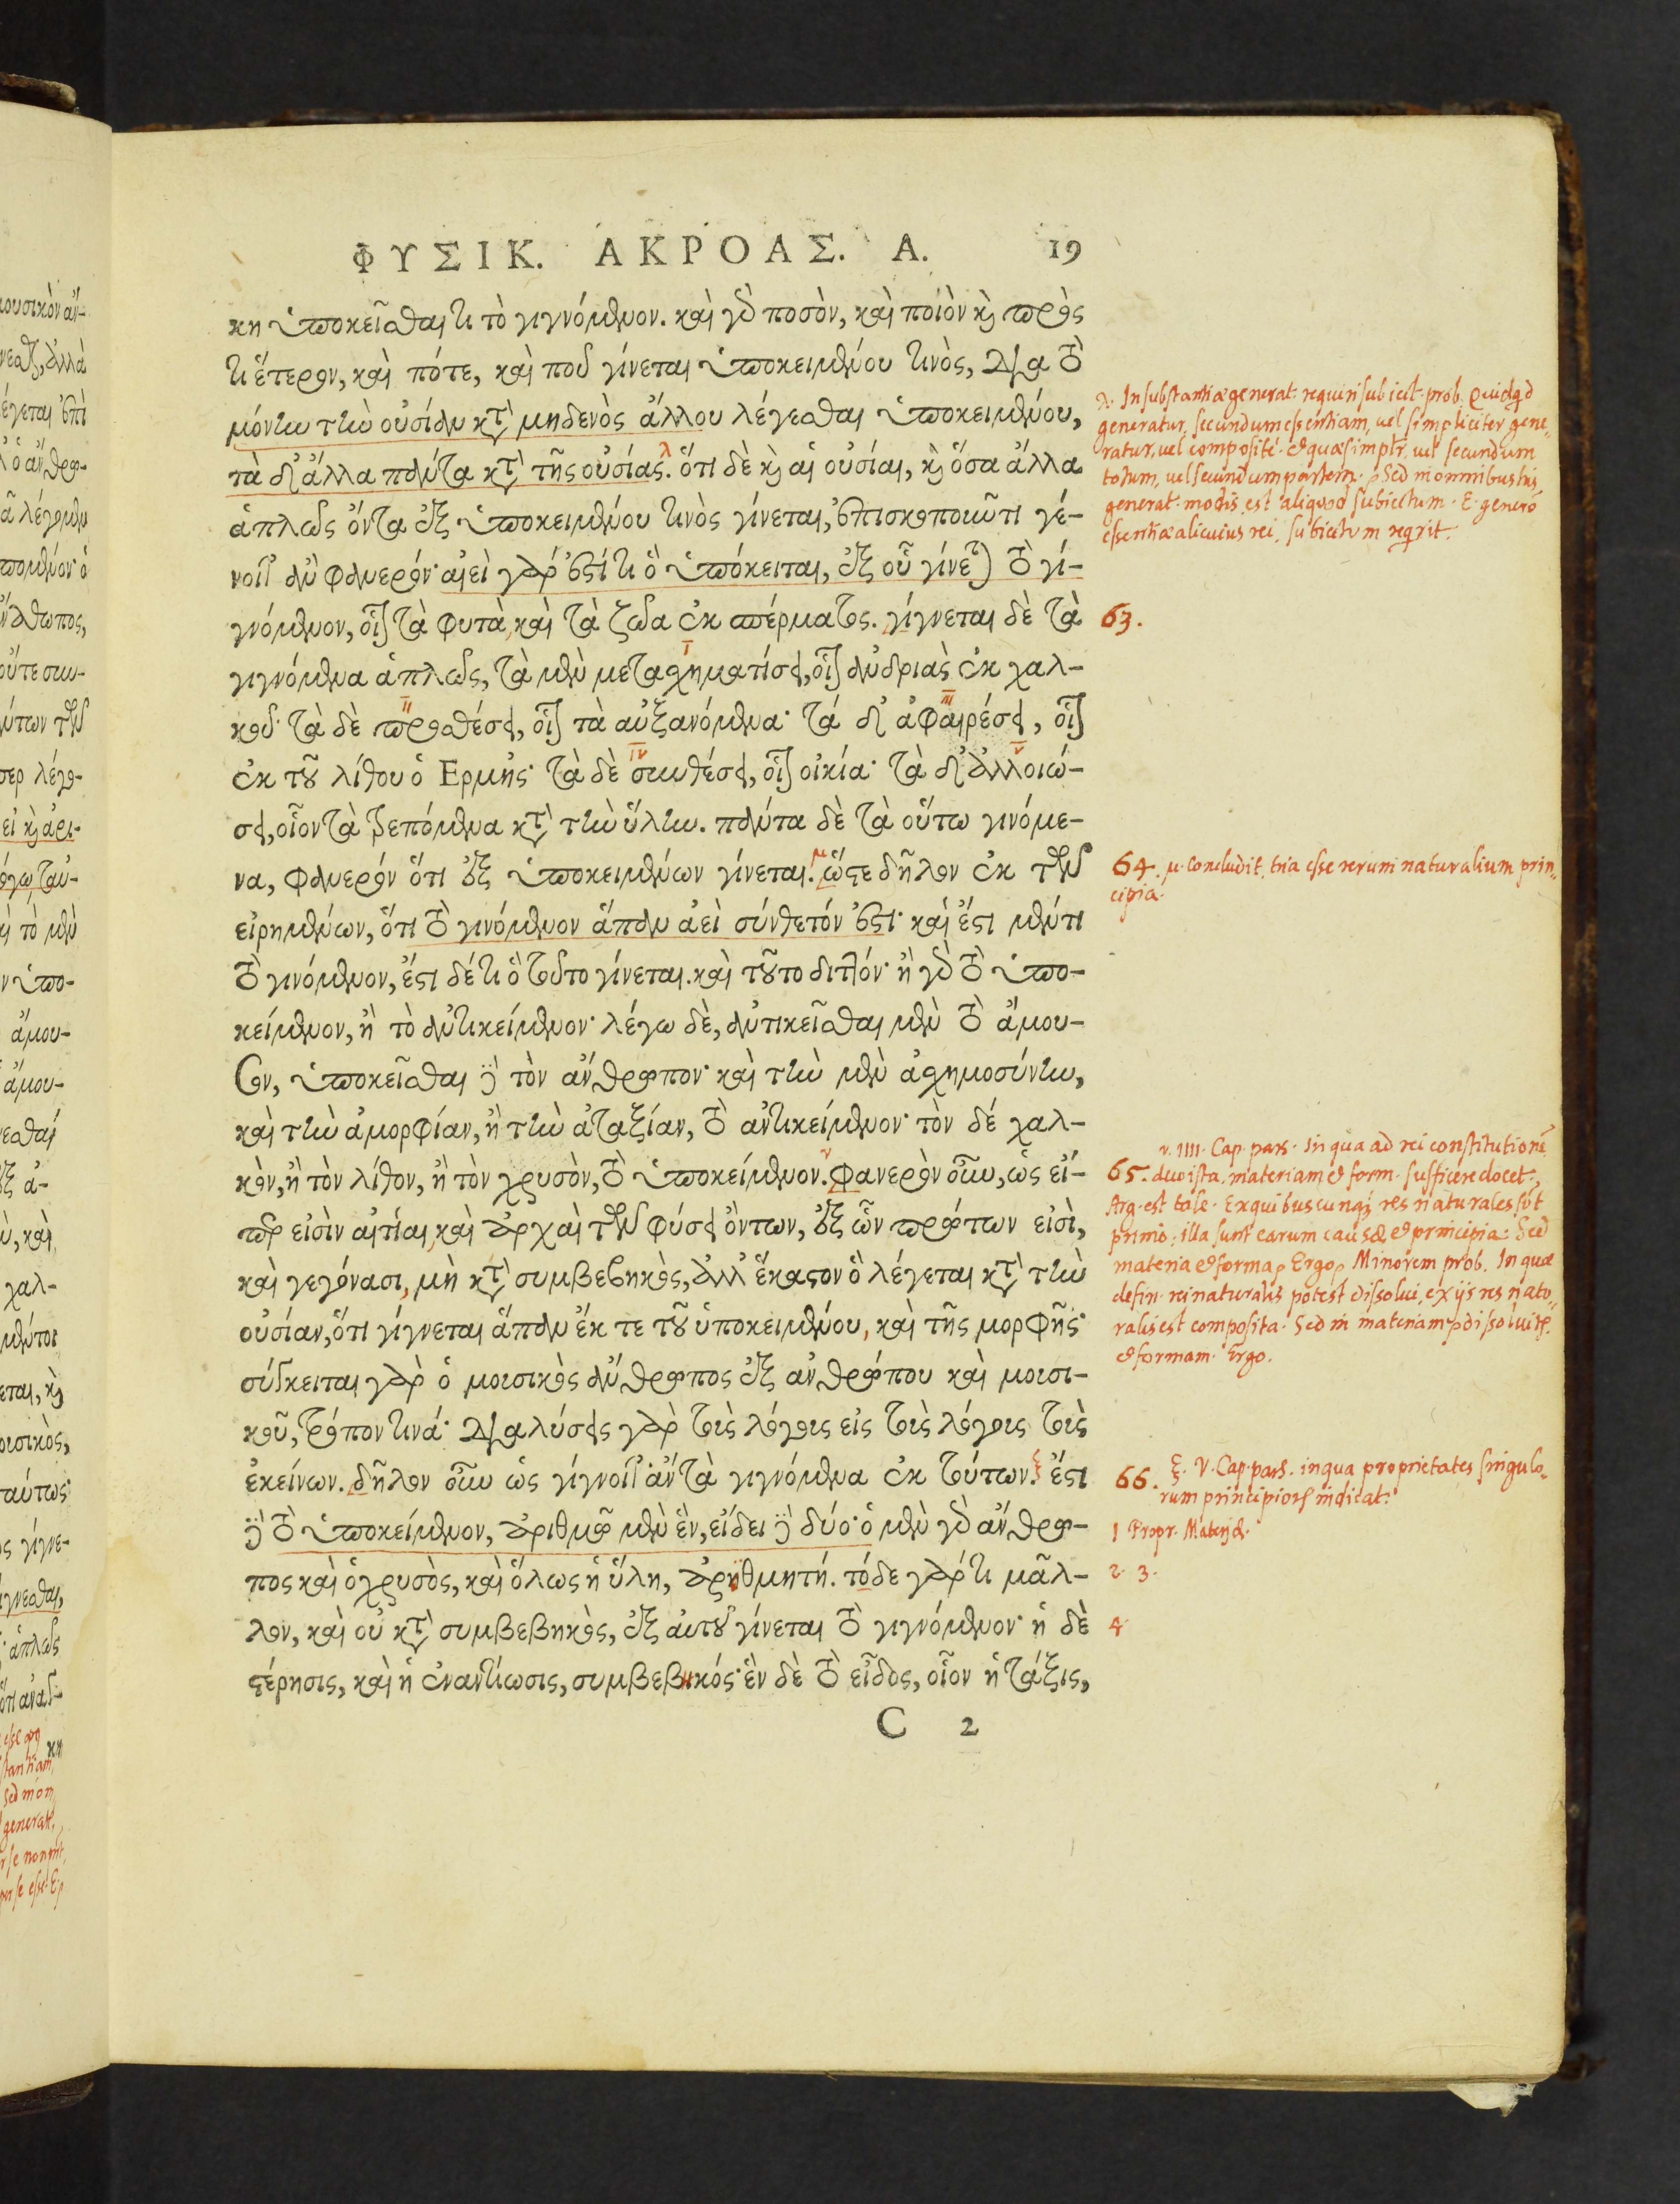 ΦΥΣΙΚ. ΑΚΡΟΑΣ. Α. 19
κη ὑποκεῖσθαι τι τὸ γιγνόμενον. καὶ γὸ ποσὸν, καὶ ποιὸν κὶ πρὸς
τι ἕτερον, καὶ πότε, καὶ ποῦ γίνεται ὑποκειμένου τινὸς, διὰ τὸ
μόνην τὴν οὐσίαν κτ̀ μηδενὸς ἄλλου λέγεσθαι ὑποκειμένου,
τὰ δ' ἄλλα πάντα κτ̀ τῆς οὐσίας. ὅτι δὲ κὶ αἱ οὐσίαι, κὶ ὅσα ἄλλα
ἁπλῶς ὄντα ἐξ ὑποκειμένου τινὸς γίνεται, ἐπισκοποιῶτι γέ-
νοιτ' ἂν φανερόν· αἰεὶ γάρ ἐστί τι ὃ ὑπόκειται, ἐξ οὗ γίνετ) τὸ γι-
γνόμενον, οἷον τὰ φυτὰ, καὶ τὰ ζῶα ἐκ σπέρματος. γίγνεται δὲ τὰ
γιγνόμενα ἁπλῶς, τὰ μὲν μετασχηματίσει, οἷον ἀνδριὰς ἐκ χαλ-
κοῦ· τὰ δὲ προσθέσει, οἷον τὰ αὐξανόμενα· τά δ' ἀφαιρέσει, οἷον
ἐκ τοῦ λίθου ὁ Ερμῆς· τὰ δὲ συνθέσει, οἷον οἰκία· τὰ δ' ἀλλοιώ-
σει, οἷον τὰ τρεπόμενα κτ̀ τὴν ὕλην. πάντα δὲ τὰ οὕτω γινόμε-
να, φανερὸν ὅτι ἐξ ὑποκειμένων γίνεται. ὥστε δῆλον ἐκ τῶν
εἰρημένων, ὅτι τὸ γινόμενον ἅπαν ἀεὶ σύνθετόν ἐστι· καὶ ἔστι μέν τι
τὸ γινόμενον, ἔστι δέ τι ὃ τοῦτο γίνεται. καὶ τοῦτο διτλόν· ἢ γὸ τὸ ὑπο-
κείμενον, ἢ τὸ ἀντικείμενον· λέγω δὲ, ἀντικεῖσθαι μὲν τὸ ἄμου-
σον, ὑποκεῖσθαι δὲ τὸν ἄνθρωπον· καὶ τὴν μὲν ἀσχημοσύνην,
καὶ τὴν ἀμορφίαν, ἢ τὴν ἀταξίαν, τὸ ἀντικείμενον· τὸν δέ χαλ-
κὸν, ἢ τὸν λίθον, ἢ τὸν χρυσὸν, τὸ ὑποκείμενον. φανερὸν οὖν, ὡς εἴ-
περ εἰσὶν αἰτίαι, καὶ ἀρχαὶ τῶν φύσει ὄντων, ἐξ ὧν πρώτων εἰσὶ,
καὶ γεγόνασι, μὴ κτ̀ συμβεβηκὸς, ἀλλ' ἕκαστον ὃ λέγεται κτ̀ τὴν
οὐσίαν, ὅτι γίγνεται ἅπαν ἔκ τε τοῦ ὑποκειμένου, καὶ τῆς μορφῆς·
σύγκειται γὰρ ὁ μουσικὸς ἄνθρωπος ἐξ ἀνθρώπου καὶ μουσι-
κοῦ, τρόπον τινά· διαλύσεις γὰρ τοὺς λόγους εἰς τοὺς λόγους τοὺς
ἐκείνων. δῆλον οὖν ὡς γίγνοιτ' ἂν τὰ γιγνόμενα ἐκ τούτων. ἔστι
δὲ τὸ ὑποκείμενον, ἀριθμῷ μὲν ἓν, εἴδει δὲ δύο· ὁ μὲν γὸ ἄνθρω-
πος καὶ ὁ χρυσὸς, καὶ ὅλως ἡ ὕλη, ἀριθμητή. τόδε γάρ τι μᾶλ-
λον, καὶ οὐ κτ̀ συμβεβηκὸς, ἐξ αὐτοῦ γίνεται τὸ γιγνόμενον· ἡ δὲ
στέρησις, καὶ ἡ ἐναντίωσις, συμβεβηκός· ἓν δὲ τὸ εἶδος, οἷον ἡ τάξις,
C 2
λ. In substantiæ generat. requiri subiect. prob. Quidqd
generatur, secundum essentiam, vel simpliciter gene,,
ratur, vel compositè. & quæ simplr, vel secundum
totum, vel secundum partem. Sed in omnibus his
generat. modis, est aliquod subiectum. E. generõ
essentiæ alicuius rei, subiectum reqrit.
63.
64. μ. Concludit, tria esse rerum naturalium prin,,
cipia.
ν. IIII. Cap. pars. In qua ad rei constitutionẽ
65. duo ista, materiam & form. sufficere docet.
Arg. est tale. Ex quibuscunq; res naturales sūt
primò, illa sunt earum causæ & principia: Sed
materia & forma, Ergo, Minorem prob. In quæ
defin. rei naturalis potest dissolui, ex ijs res natu,,
ralis est composita. Sed in materiam dissoluitr
& formam. Ergo.
66. ξ. V. Cap. pars. in qua proprietates singulo,,
rum principiorum indicat.
1 Propr. Materiæ.
2 3.
4